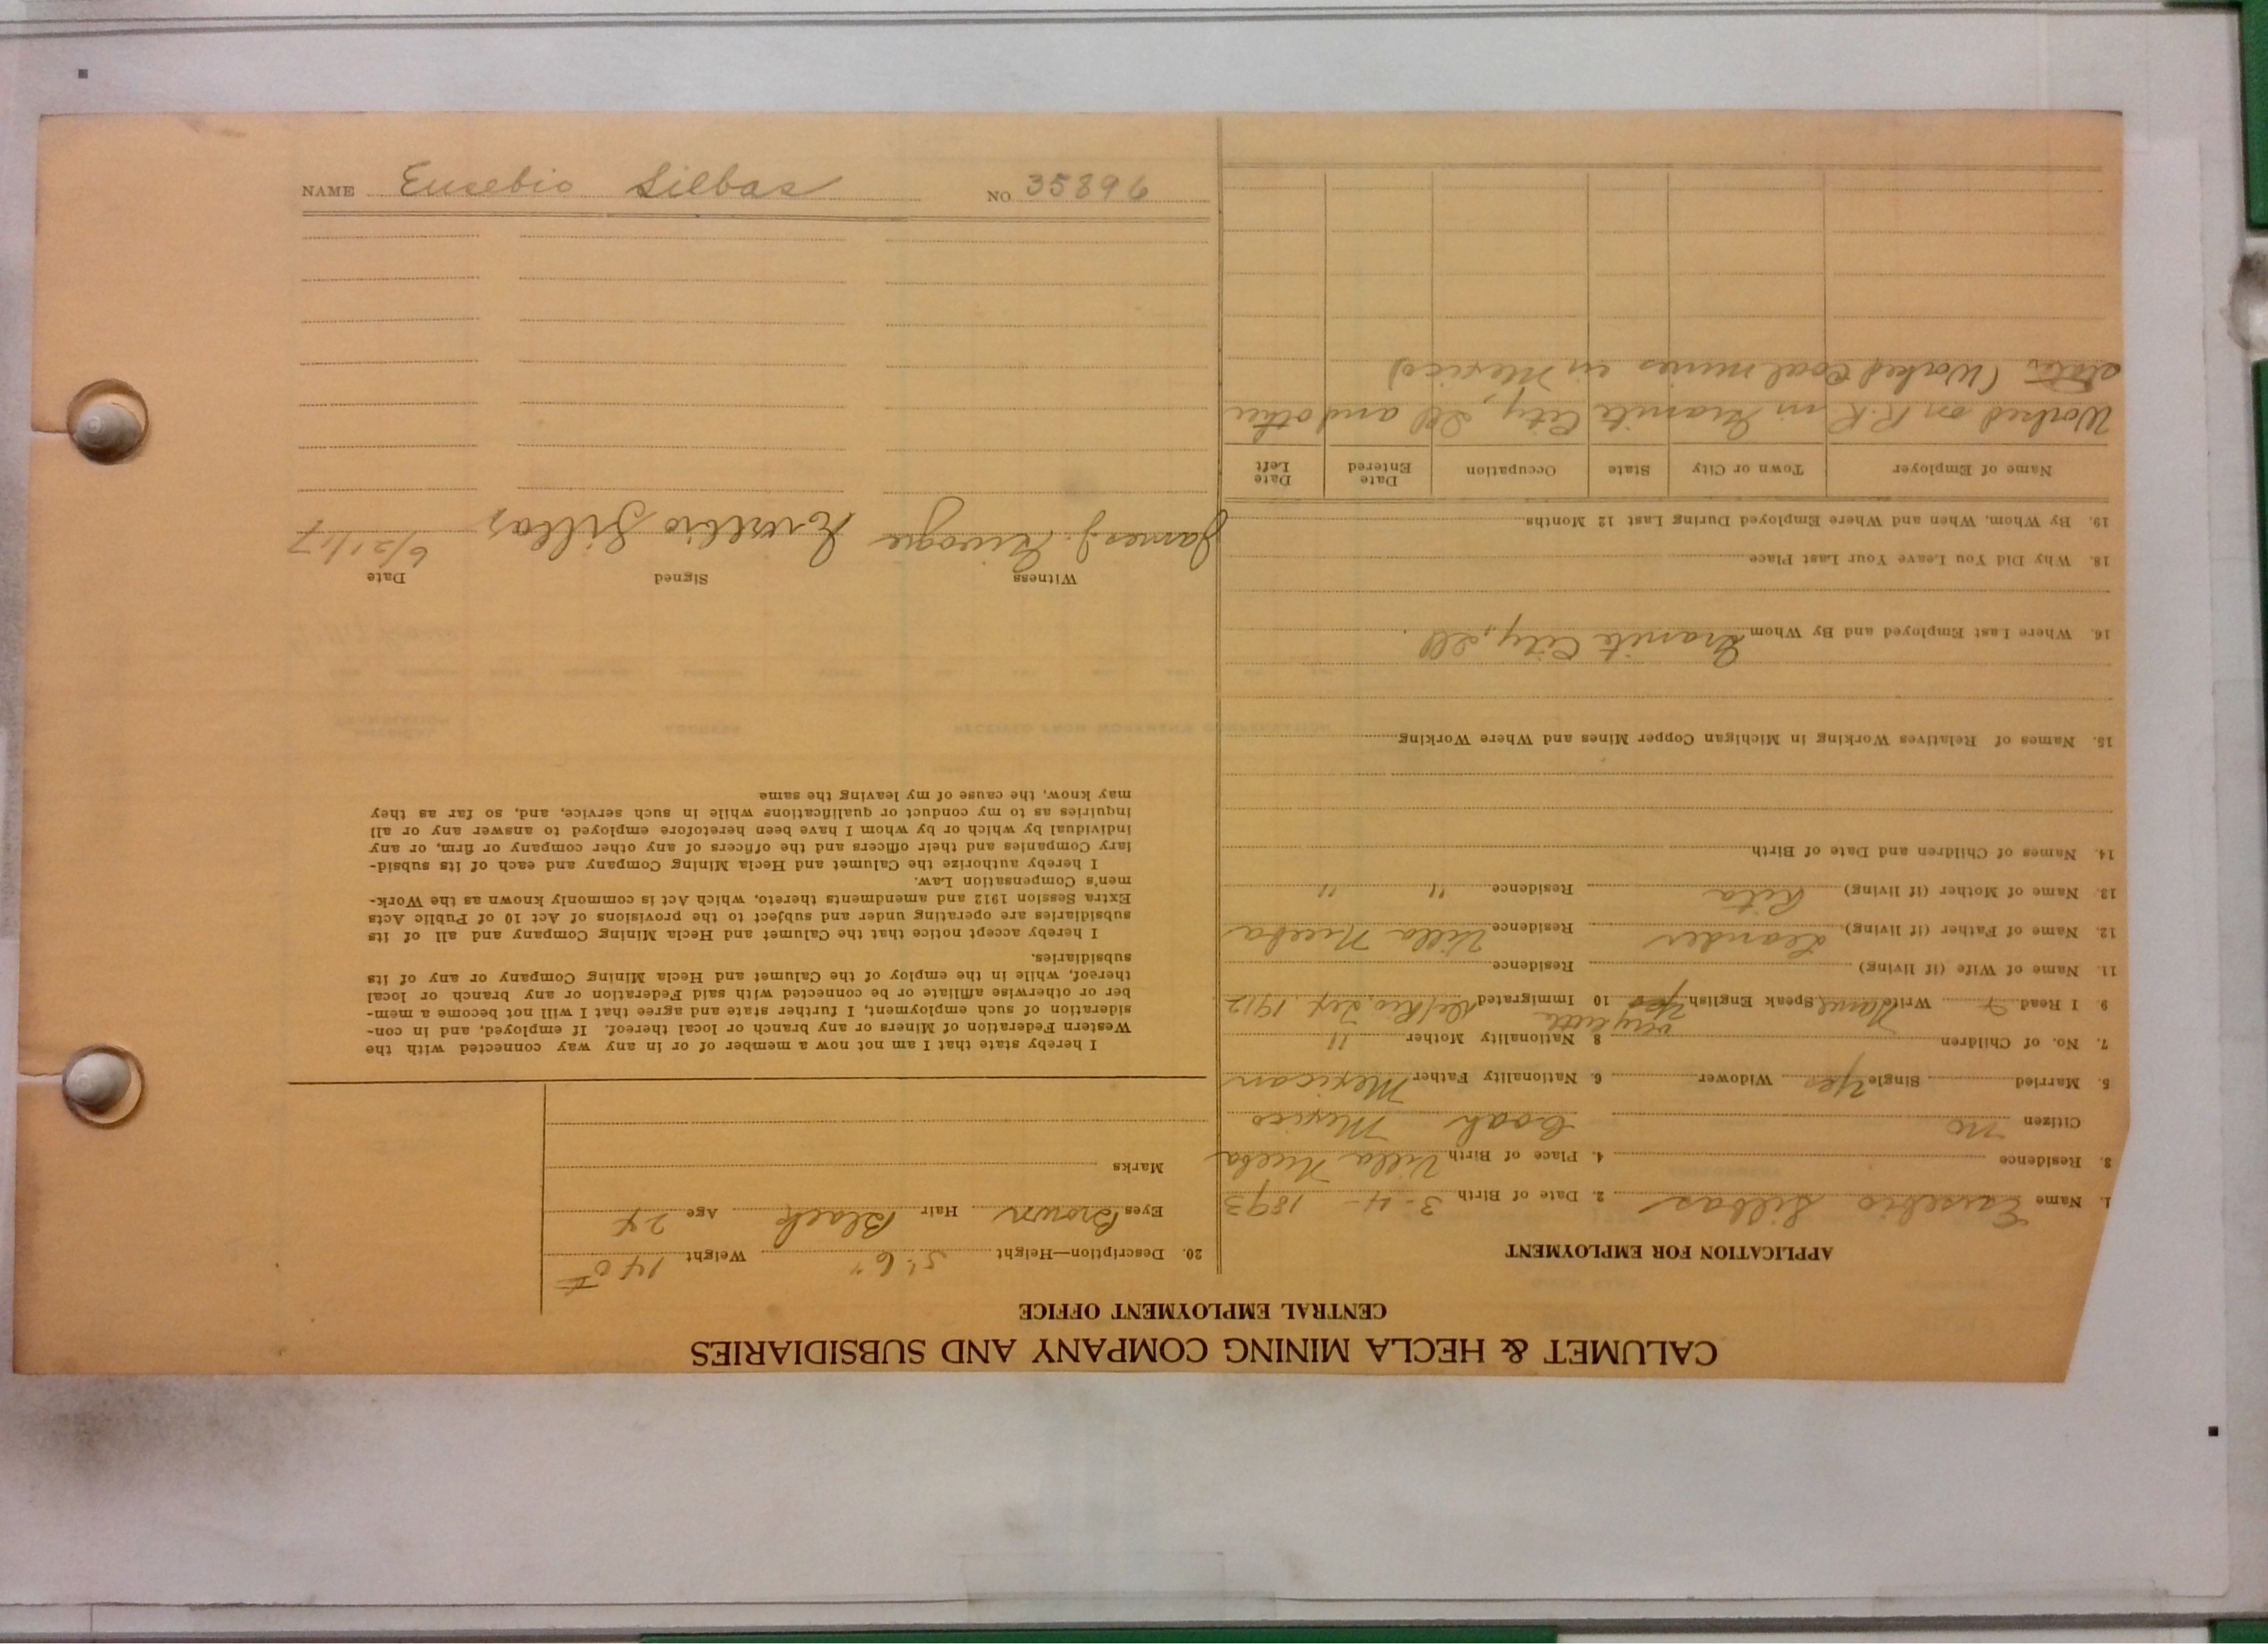 NAME Eusebio Silbas NO. 35896
CALUMET & HECLA MINING COMPANY AND SUBSIDIARIES
CENTRAL EMPLOYMENT OFFICE
APPLICATION FOR EMPLOYMENT
1. Name Eusebio Silbas 2. Date of Birth 3-4-1893
3. Residence 4. Place of Birth Villa
Citizen no Coah Mexico
5. Married Single Yes Widower 6. Nationality Father Mexican
7. No. of Children 8 Nationality Mother "
very little
9. I Read Write Name Speak English yes 10 Immigrated Del Rio, Tex. 1912
11. Name of Wife (if living) Residence
12. Name of Father (if living) Leander Residence Villa
13. Name of Mother (if living) Rita Residence " "
14. Names of Children and Date of Birth
15. Names of Relatives Working in Michigan Copper Mines and Where Working
16. Where Last Employed and By Whom Granite City, Ill
18. Why Did You Leave Your Last Place
19. By Whom, When and Where Employed During Last 12 Months
Name of Employer Town or City State Occupation Date Entered Date Left
Worked on R.R in Granite City, Ill and other
states (Worked Coal mines in Mexico)
20. Description—Height 5' 6" Weight 140#
Eyes Brown Hair Black Age 24
Marks
I hereby state that I am not now a member of or in any way connected with the
Western Federation of Miners or any branch or local thereof. If employed, and in con-
sideration of such employment, I further state and agree that I will not become a mem-
ber or otherwise affiliate or be connected with said Federation or any branch or local
thereof, while in the employ of the Calumet and Hecla Mining Company or any of its
subsidiaries.
I hereby accept notice that the Calumet and Hecla Mining Company and all of its
subsidiaries are operating under and subject to the provisions of Act 10 of Public Acts
Extra Session 1912 and amendments thereto, which Act is commonly known as the Work-
men's Compensation Law.
I hereby authorize the Calumet and Hecla Mining Company and each of its subsid-
iary Companies and their officers and the officers of any other company or firm, or any
individual by which or by whom I have been heretofore employed to answer any or all
inquiries as to my conduct or qualifications while in such service, and, so far as they
may know, the cause of my leaving the same
Witness Signed Date
James J. Eusebio Silbas 6/21/17